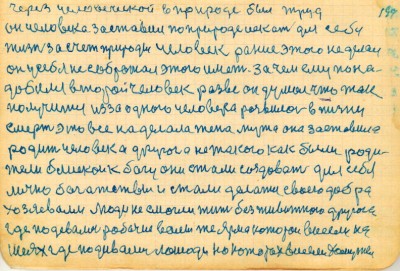 199
через человеческой в природе был труд
он человека заставил по природе искать для себя
жить за счет природы человек раньше этого не делал
он у себя не сображал этого иметь. Зачем ему пона
добился второй человек разве он думал что так
получится из за одного человека развилось в жизни
смерть это все наделала жена мужа она заставила
родить человека другого не такого как были роди-
тели близкой к богу они стали создовать для себя
лично богатства и стали делать своего добра
хозяевами люди не смогли жить без животного другого
где подевались робочие волы же ярма которои висели на
шеях где подевались лошади на которых висели хомути